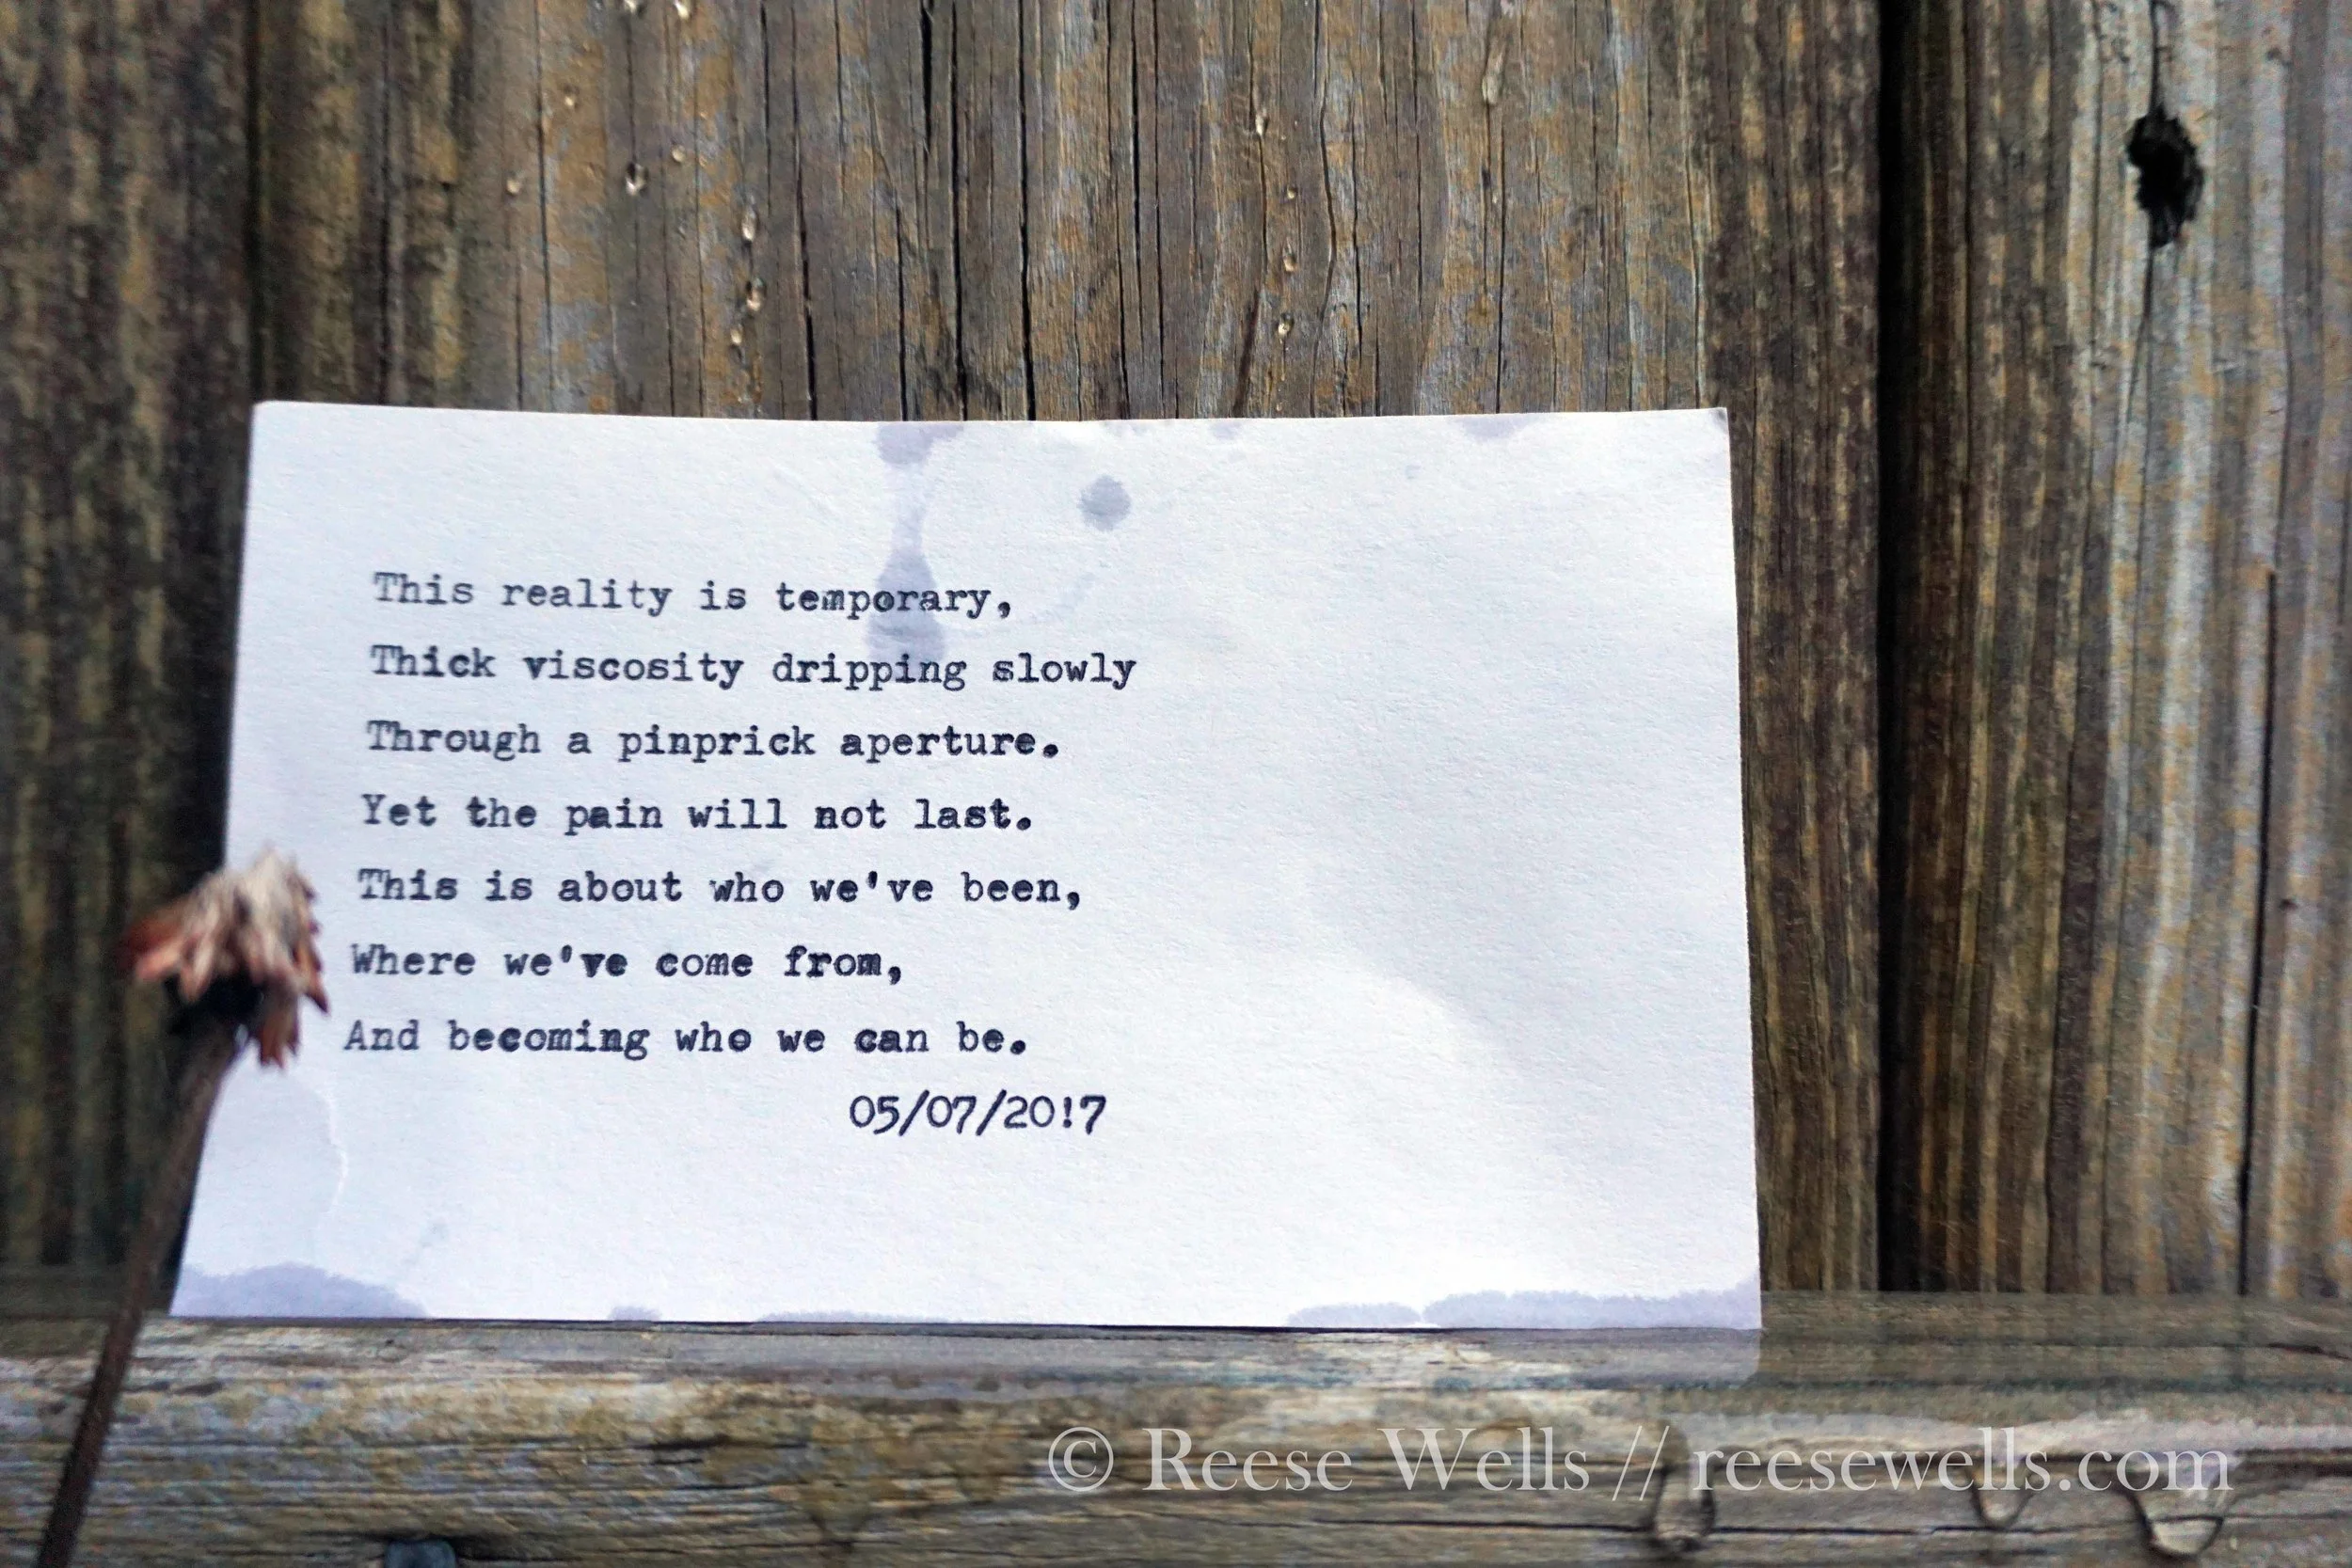 This reality is temporary,
Thick viscosity dripping slowly
Through a pinprick aperture.
Yet the pain will not last.
This is about who we've been,
Where we've come from,
And becoming who we can be.
05/07/20!7
© Reese Wells // reesewells.com